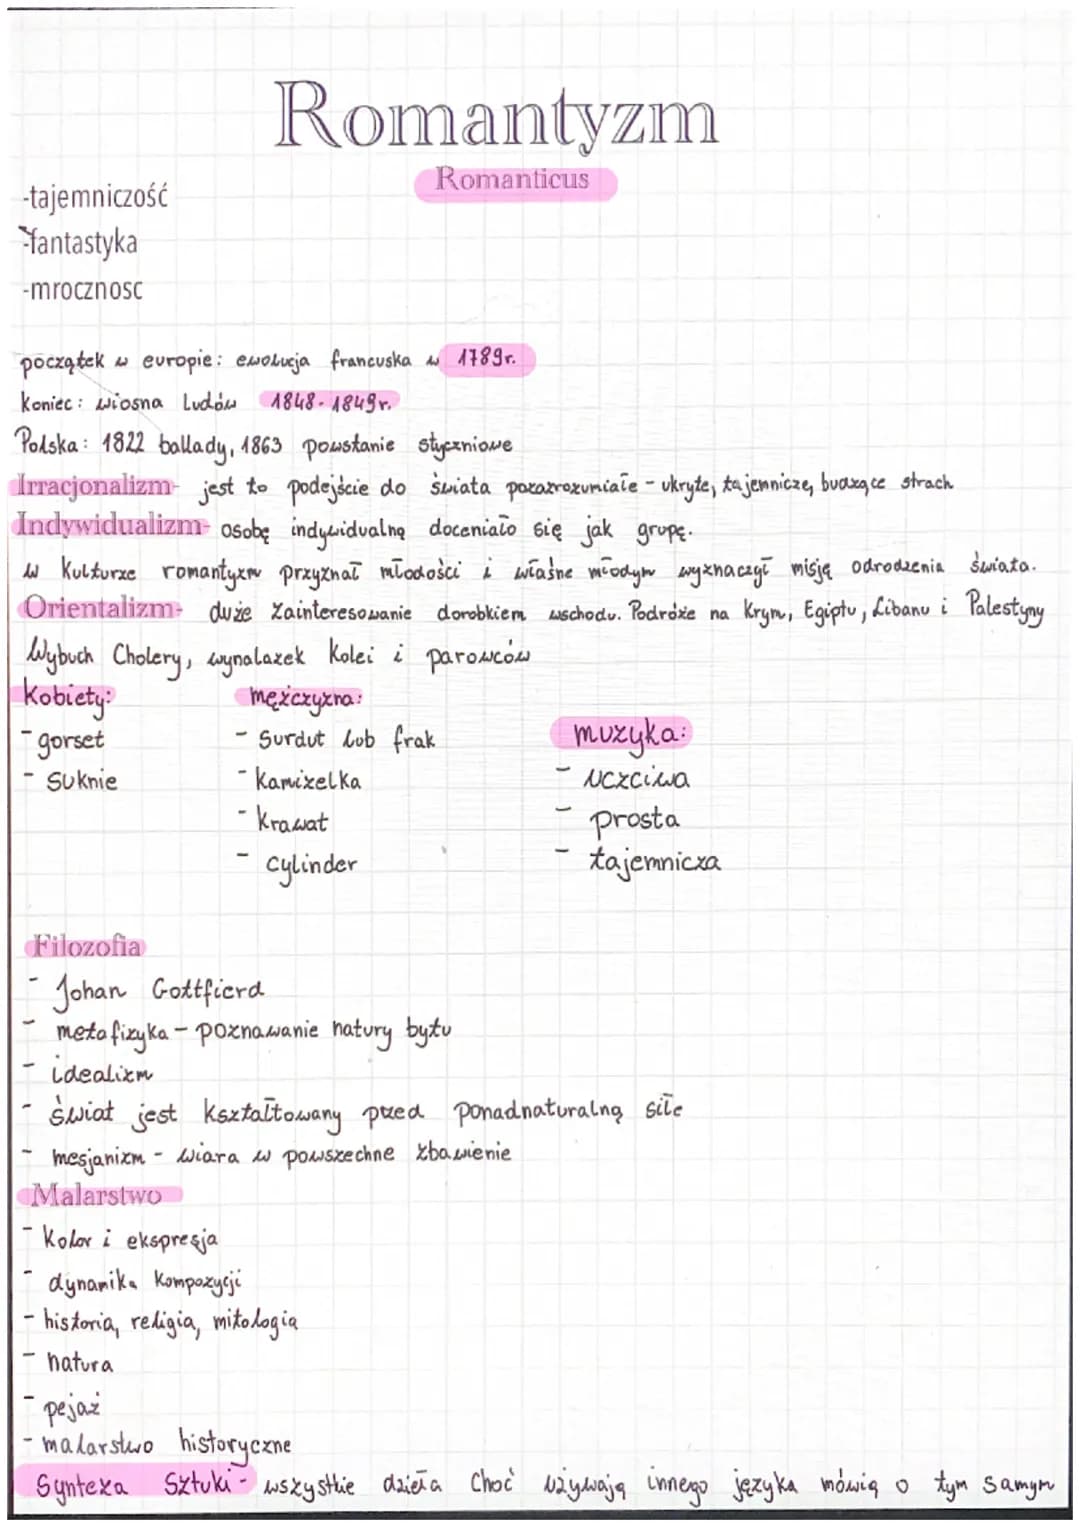 Romantyzm
Romanticus
-tajemniczość
-fantastyka
-mrocznosc
początek w europie: ewolucja francuska w 1789r.
koniec: wiosna Ludów 1848-1849r.
Polska: 1822 ballady, 1863 powstanie styczniowe
Irracjonalizm- jest to podejście do świata pozazrozumiałe - ukryte, tajemnicze, budzące strach
Indywidualizm- osobę indywidualną doceniało się jak grupę.
w kulturze romantyzm przyznał młodości i właśne młodym wyznaczył misję odrodzenia świata.
Orientalizm- duże zainteresowanie dorobkiem wschodu. Podróże na Krym, Egiptu, Libanu i Palestyny
Wybuch Cholery, wynalazek kolei i parowców
Kobiety:
- gorset
- suknie
mężczyzna:
- Surdut lub frak
- kamizelka
- krawat
- cylinder
muzyka:
- uczciwa
- prosta
- tajemnicza
Filozofia
- Johan Gottfierd
- metafizyka - poznawanie natury bytu
- idealizm
- świat jest kształtowany przed ponadnaturalną siłe
- mesjanizm - wiara w powszechne zbawienie
Malarstwo
- kolor i ekspresja
- dynamika kompozycji
- historia, religia, mitologia
- natura
- pejaż
- malarstwo historyczne
Synteza Sztuki - wszystkie dzieła choć używają innego języka mówią o tym samym